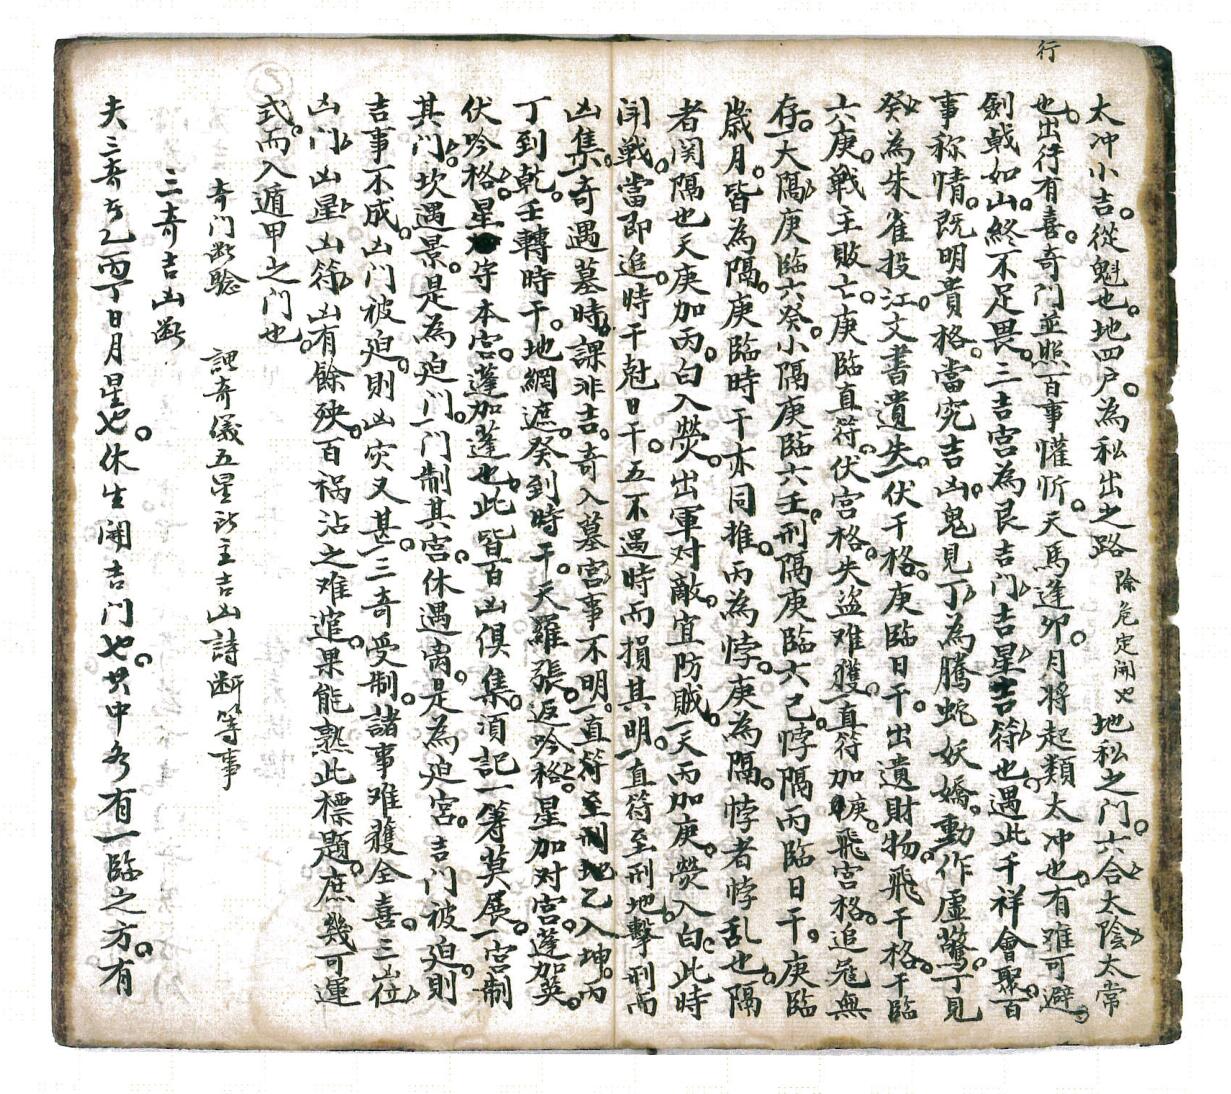 行
太冲小吉。從魁也。地四户為私出之路 除危定開也 地私之门。六合太陰太常
也。出行有喜。奇门並照。百事懽忻。天馬逢夘。月将起類。太冲也。有难可避。
劍戟如山。終不足畏。三吉宮為良。吉门吉星吉符也。遇此千祥會聚。百
事称情。既明貴格。當究吉凶。鬼見丁為騰蛇妖嬌。動作虛驚。丁見
癸為朱雀投江。文書遺失。伏干格。庚臨日干。出遺財物。飛干格。干臨
六庚。戦主敗亡。庚臨直符。伏宮格。失盗难獲。直符加庚。飛宮格。追冤無
存。一大隔。庚臨六癸。小隔庚臨六壬。刑隔庚臨六己。悖隔丙臨日干。庚臨
歲月。皆為隔。庚臨時干亦同推。丙為悖。庚為隔。悖者悖乱也。隔
者関隔也。天庚加丙。白入熒。出軍对敵。宜防贼。一天丙加庚。熒入白。此時
闭戦。當即進。時干尅日干。五不遇時而損其明。一直符至刑地。擊刑而
凶集。一奇遇墓時。課非吉。奇入墓宮。事不明。一直符至刑地。乙入坤。丙
丁到乾。壬轉時干。地網遮。癸到時干。天羅張。返吟格。星加对宮。蓬加英。
伏吟格。星守本宮。蓬加蓬也。此皆百凶俱集。須記一筭莫展。一宮制
其门。坎遇景。是為迫门。一门制其宮。休遇离。是為迫宮。吉门被迫。則
吉事不成。凶门被迫。則凶灾又甚。一三奇受制。諸事难獲全喜。三凶位
凶门凶星凶符。凶有餘殃。百祸沾之难逭。果能熟此標題。庶幾可運
式。而入遁甲之门也。
奇门断驗 課奇儀五星所主吉凶詩断等事
三奇吉凶断
夫三奇者乙丙丁日月星也。休生開吉门也。其中名有一臨之方。有